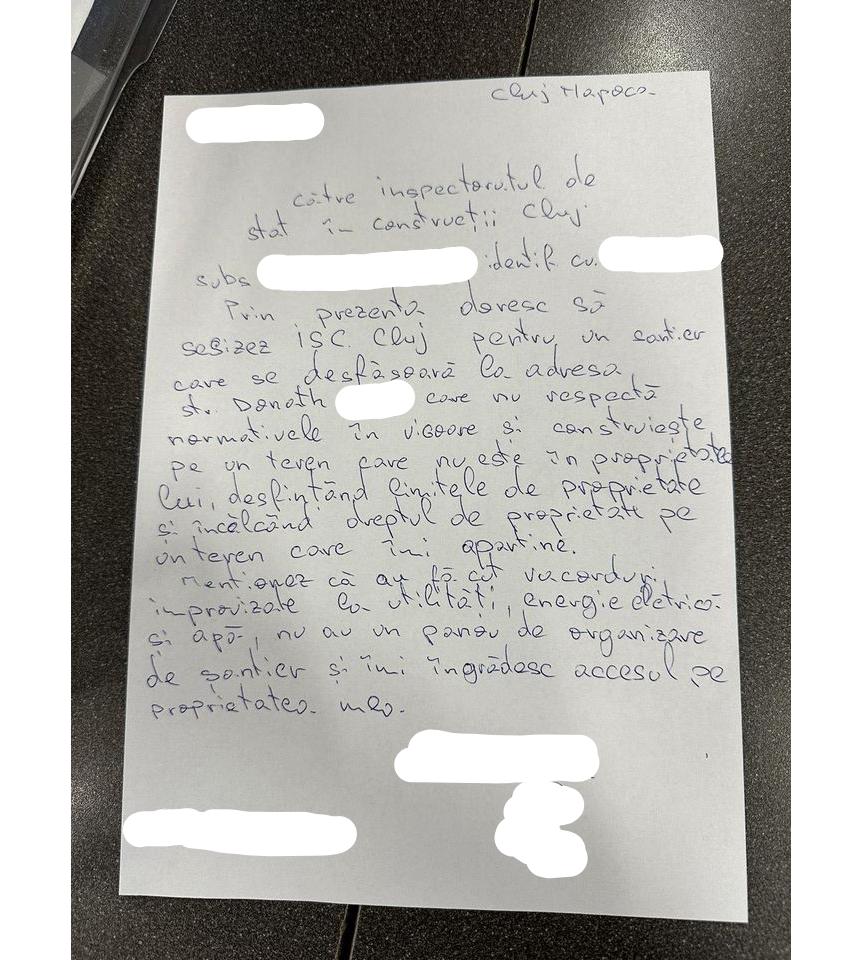 Cluj Napoca
către inspectoratul de
stat în construcții Cluj
subs identif. cu.
Prin prezenta doresc să
sesizez ISC Cluj pentru un santier
care se desfășoară la adresa
str. Donath care nu respectă
normativele în vigoare și construiește
pe un teren care nu este în proprietatea
lui, desfințând limitele de proprietate
și încălcând dreptul de proprietate pe
un teren care îmi aparține.
Menționez că au făcut racorduri
improvizate la utilități, energie eletrică
și apă, nu au un panou de organizare
de șantier și îmi îngrădesc accesul pe
proprietatea mea.